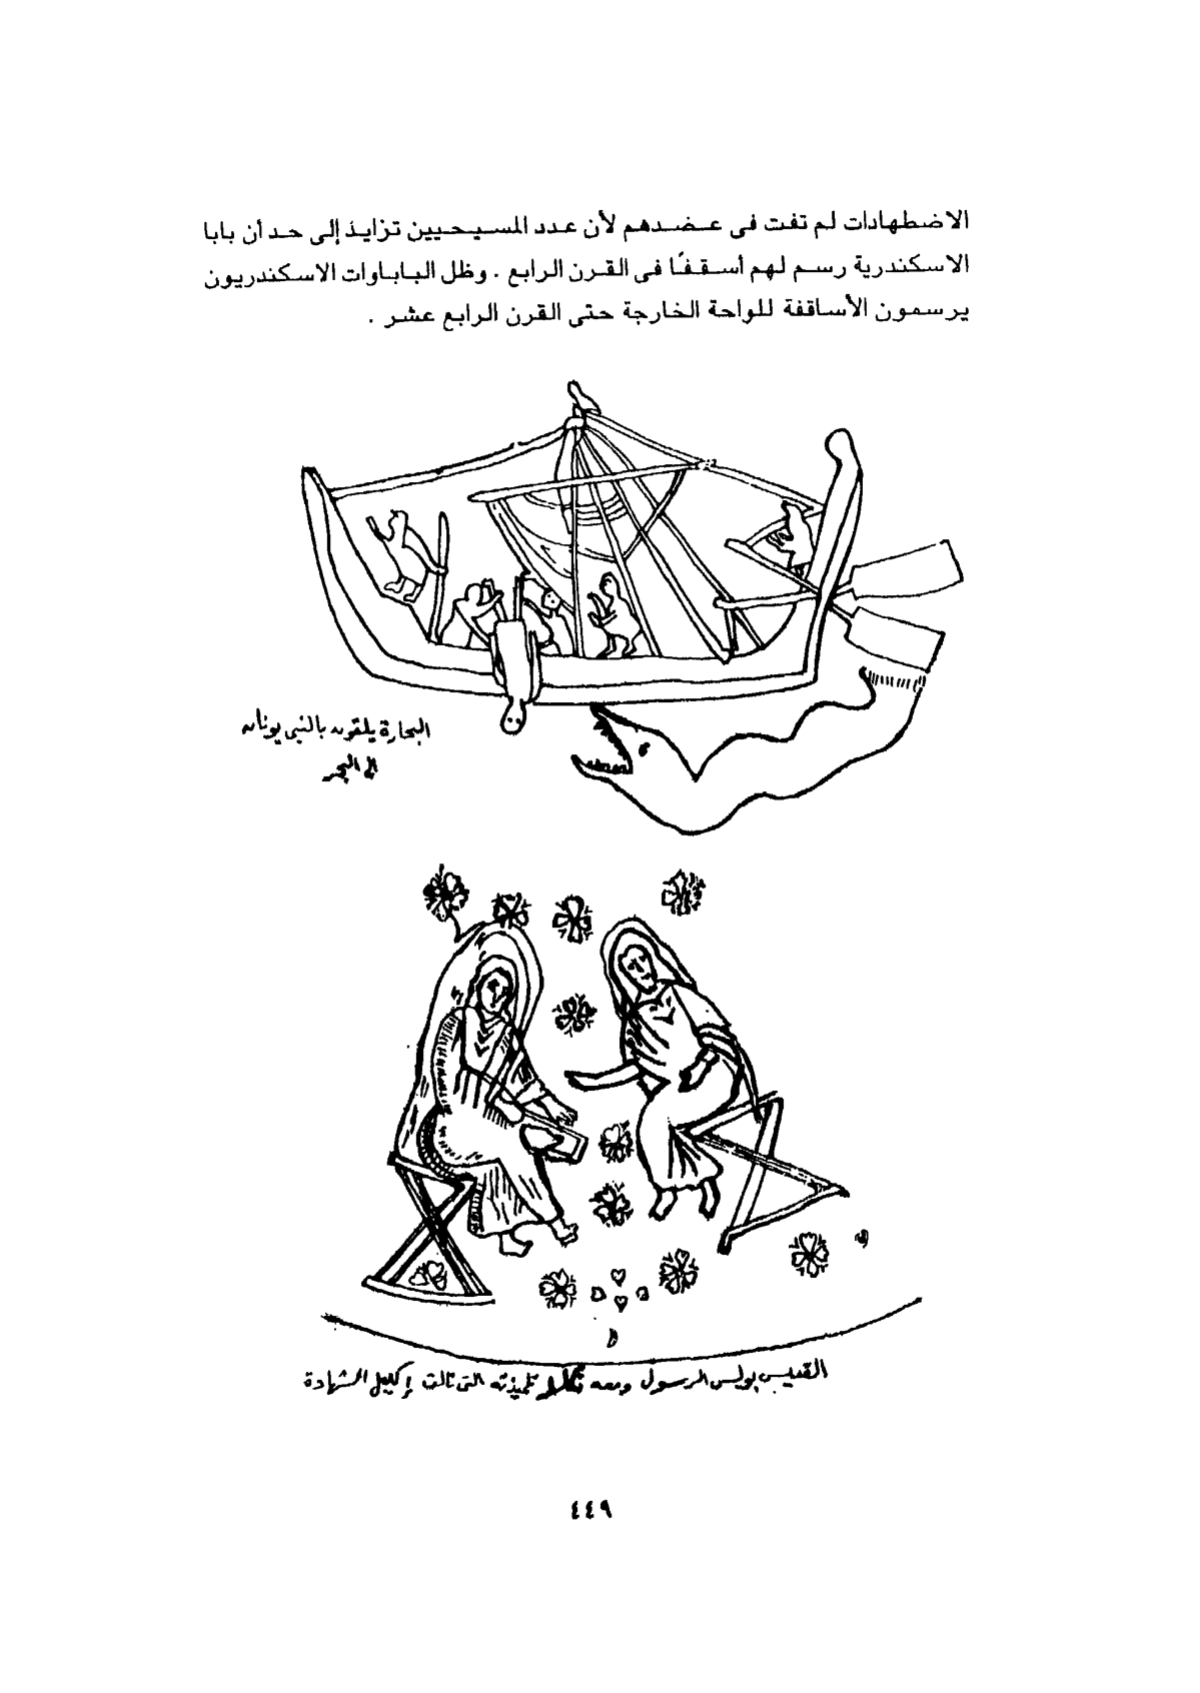 الاضطهادات لم تفت فى عضدهم لأن عدد المسيحيين تزايد إلى حد أن بابا
الاسكندرية رسم لهم أسقفًا فى القرن الرابع . وظل الباباوات الاسكندريون
يرسمون الأساقفة للواحة الخارجة حتى القرن الرابع عشر .
البحارة يلقون بالنبى يونان
الى البحر
القديس بولس الرسول ومعه تكلا تلميذته التى نالت إكليل الشهادة
٤٤٩